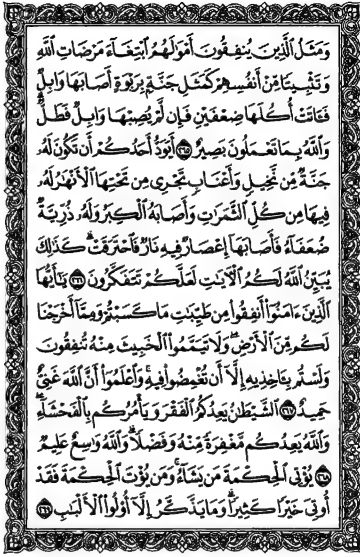 وَمَثَلُ الَّذِينَ يُنفِقُونَ أَمْوَٰلَهُمُ ٱبْتِغَآءَ مَرْضَاتِ ٱللَّهِ
وَتَثْبِيتًا مِّنْ أَنفُسِهِمْ كَمَثَلِ جَنَّةٍۭ بِرَبْوَةٍ أَصَابَهَا وَابِلٌ
فَـَٔاتَتْ أُكُلَهَا ضِعْفَيْنِ فَإِن لَّمْ يُصِبْهَا وَابِلٌ فَطَلٌّ
وَٱللَّهُ بِمَا تَعْمَلُونَ بَصِيرٌ ٢٦٥ أَيَوَدُّ أَحَدُكُمْ أَن تَكُونَ لَهُۥ
جَنَّةٌ مِّن نَّخِيلٍ وَأَعْنَابٍ تَجْرِى مِن تَحْتِهَا ٱلْأَنْهَٰرُ لَهُۥ
فِيهَا مِن كُلِّ ٱلثَّمَرَٰتِ وَأَصَابَهُ ٱلْكِبَرُ وَلَهُۥ ذُرِّيَّةٌ
ضُعَفَآءُ فَأَصَابَهَآ إِعْصَارٌ فِيهِ نَارٌ فَٱحْتَرَقَتْ ۗ كَذَٰلِكَ
يُبَيِّنُ ٱللَّهُ لَكُمُ ٱلْـَٔايَٰتِ لَعَلَّكُمْ تَتَفَكَّرُونَ ٢٦٦ يَٰٓأَيُّهَا
ٱلَّذِينَ ءَامَنُوٓا۟ أَنفِقُوا۟ مِن طَيِّبَٰتِ مَا كَسَبْتُمْ وَمِمَّآ أَخْرَجْنَا
لَكُم مِّنَ ٱلْأَرْضِ ۖ وَلَا تَيَمَّمُوا۟ ٱلْخَبِيثَ مِنْهُ تُنفِقُونَ
وَلَسْتُم بِـَٔاخِذِيهِ إِلَّآ أَن تُغْمِضُوا۟ فِيهِ ۚ وَٱعْلَمُوٓا۟ أَنَّ ٱللَّهَ غَنِىٌّ
حَمِيدٌ ٢٦٧ ٱلشَّيْطَٰنُ يَعِدُكُمُ ٱلْفَقْرَ وَيَأْمُرُكُم بِٱلْفَحْشَآءِ ۖ
وَٱللَّهُ يَعِدُكُم مَّغْفِرَةً مِّنْهُ وَفَضْلًا ۗ وَٱللَّهُ وَٰسِعٌ عَلِيمٌ
٢٦٨ يُؤْتِى ٱلْحِكْمَةَ مَن يَشَآءُ ۚ وَمَن يُؤْتَ ٱلْحِكْمَةَ فَقَدْ
أُوتِىَ خَيْرًا كَثِيرًا ۗ وَمَا يَذَّكَّرُ إِلَّآ أُو۟لُوا۟ ٱلْأَلْبَٰبِ ٢٦٩